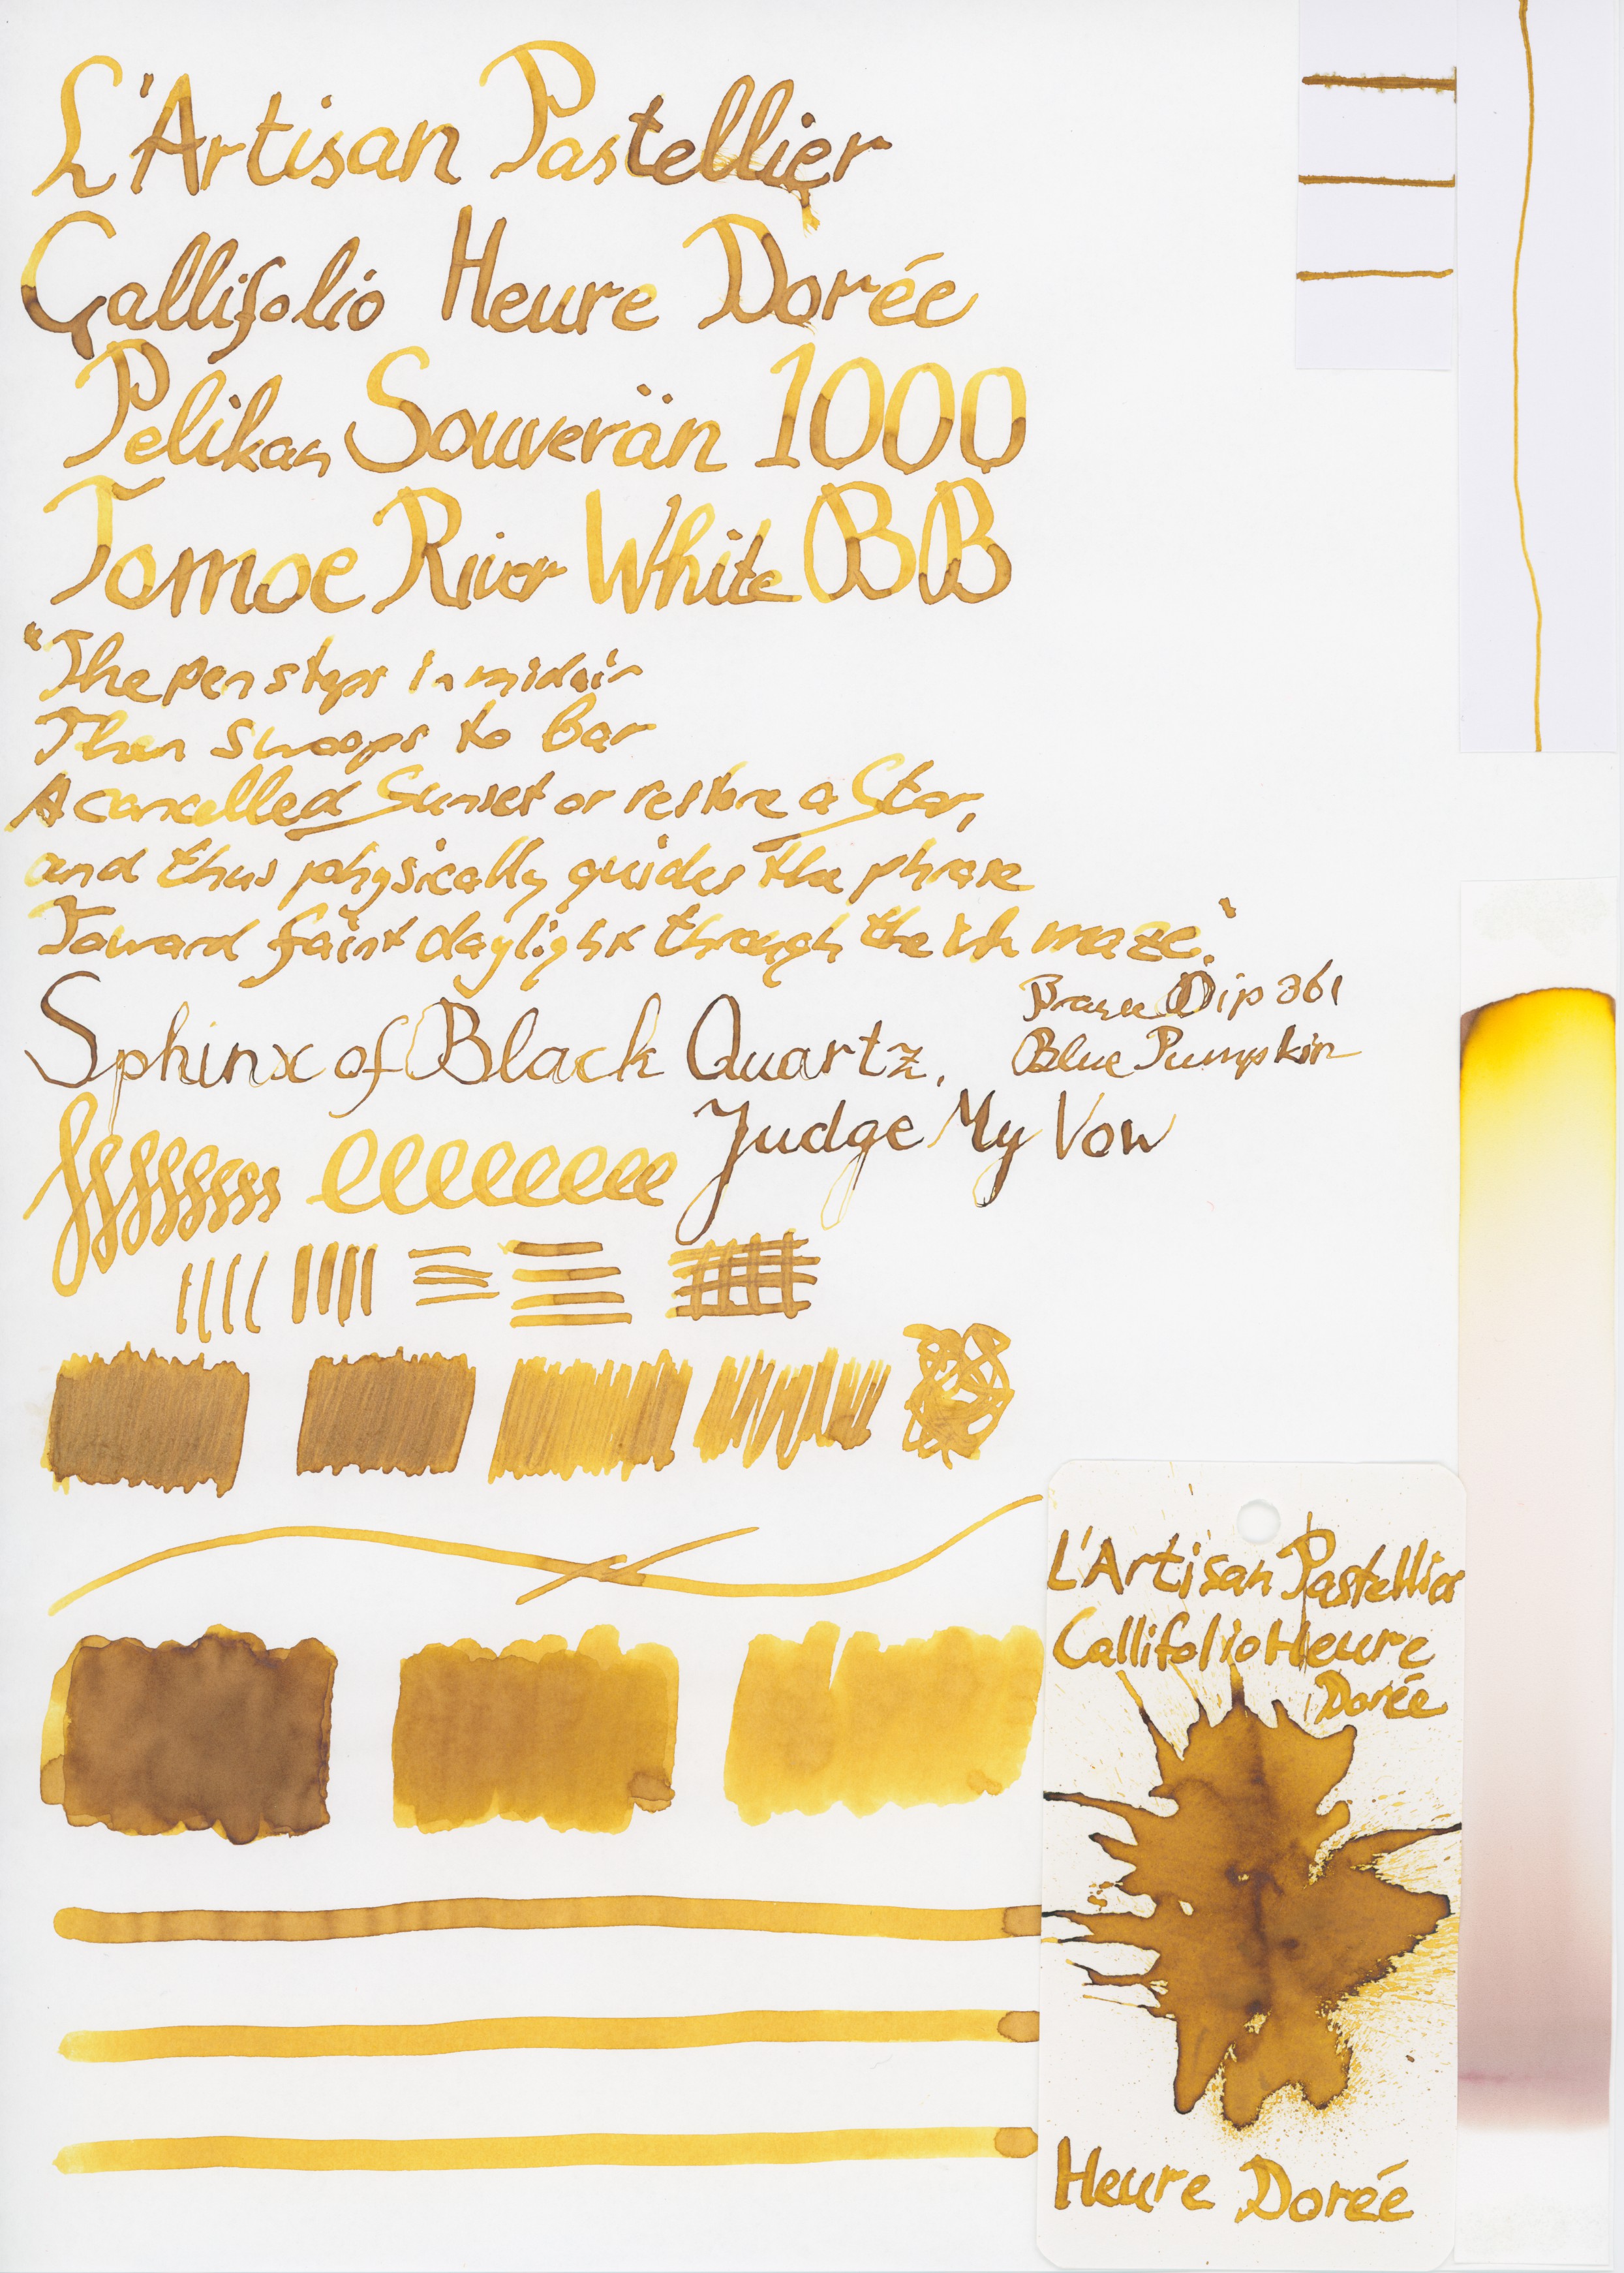 L'Artisan Pastellier
Callifolio Heure Dorée
Pelikan Souverän 1000
Tomoe River White BB
"The pen stops in midair
Then Swoops to Bar
A cancelled Sunset or restore a Star,
and thus physically guides the phrase
Toward faint daylight through the ink maze."
Sphinx of Black Quartz,
Judge My Vow
Brause Dip 361
Blue Pumpkin
L'Artisan Pastellier
Callifolio Heure
Dorée
Heure Dorée